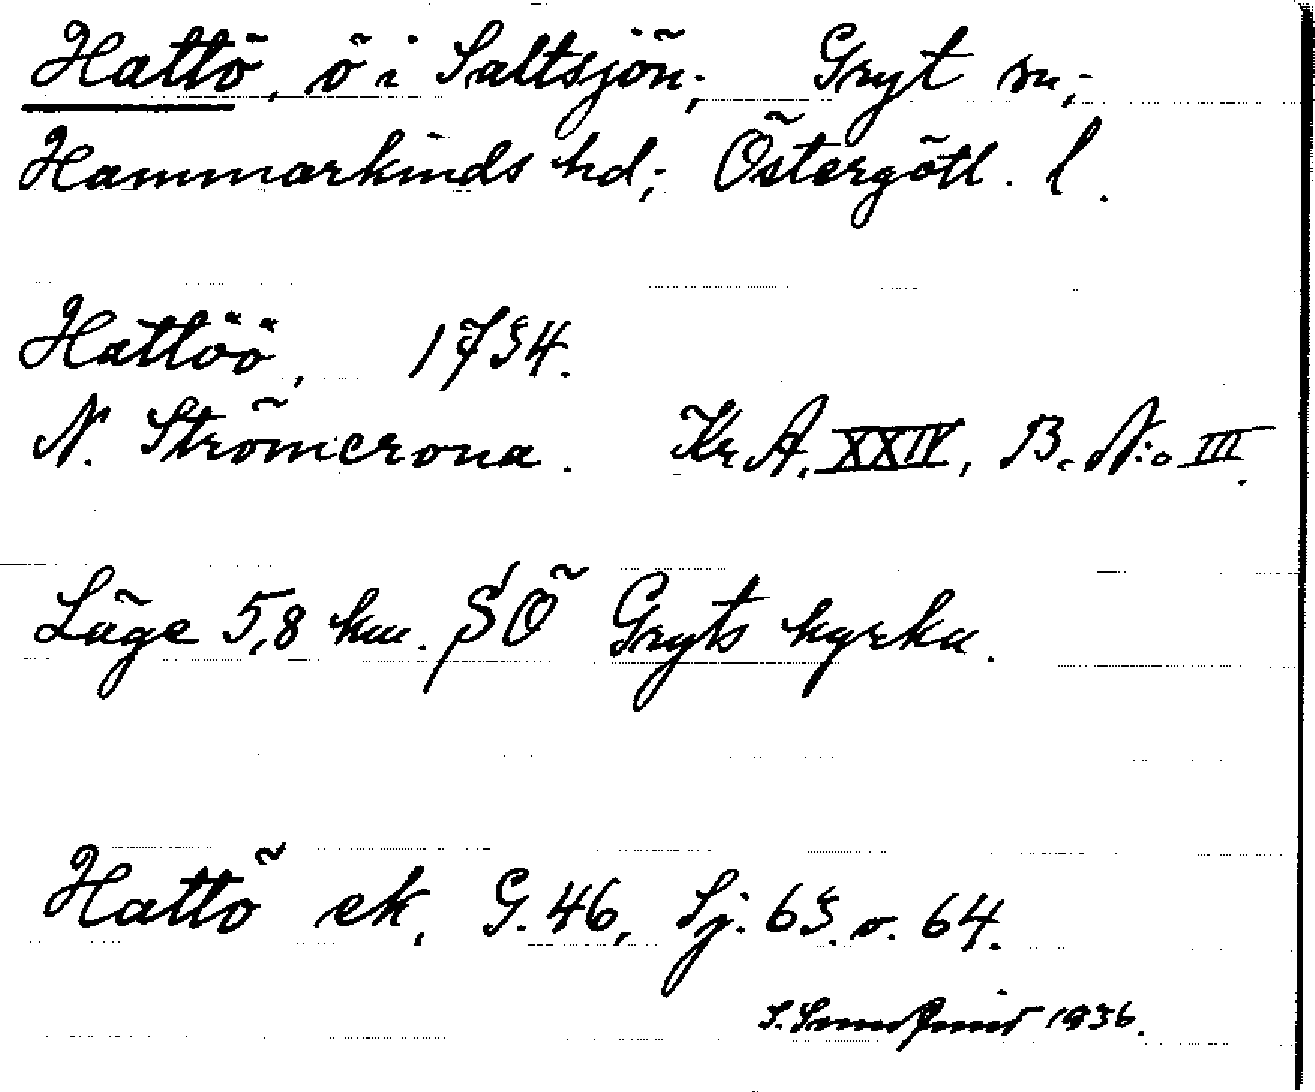 Hattö, ö i Saltsjön; Gryt sn;
Hammarkinds hd; Östergötl. l.
Hattöö, 1734.
N. Strömcrona. Kr. A. XXIV, B. N:o III.
Läge 5,8 km. SÖ Gryts kyrka.
Hattö ek, G. 46, Sj. 63. o. 64.
1936.